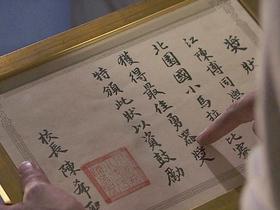 獎狀
江陳博同學
北園國小馬拉 比賽
獲得最佳勇器獎
特頒此狀以資鼓勵
校長 陳希聖